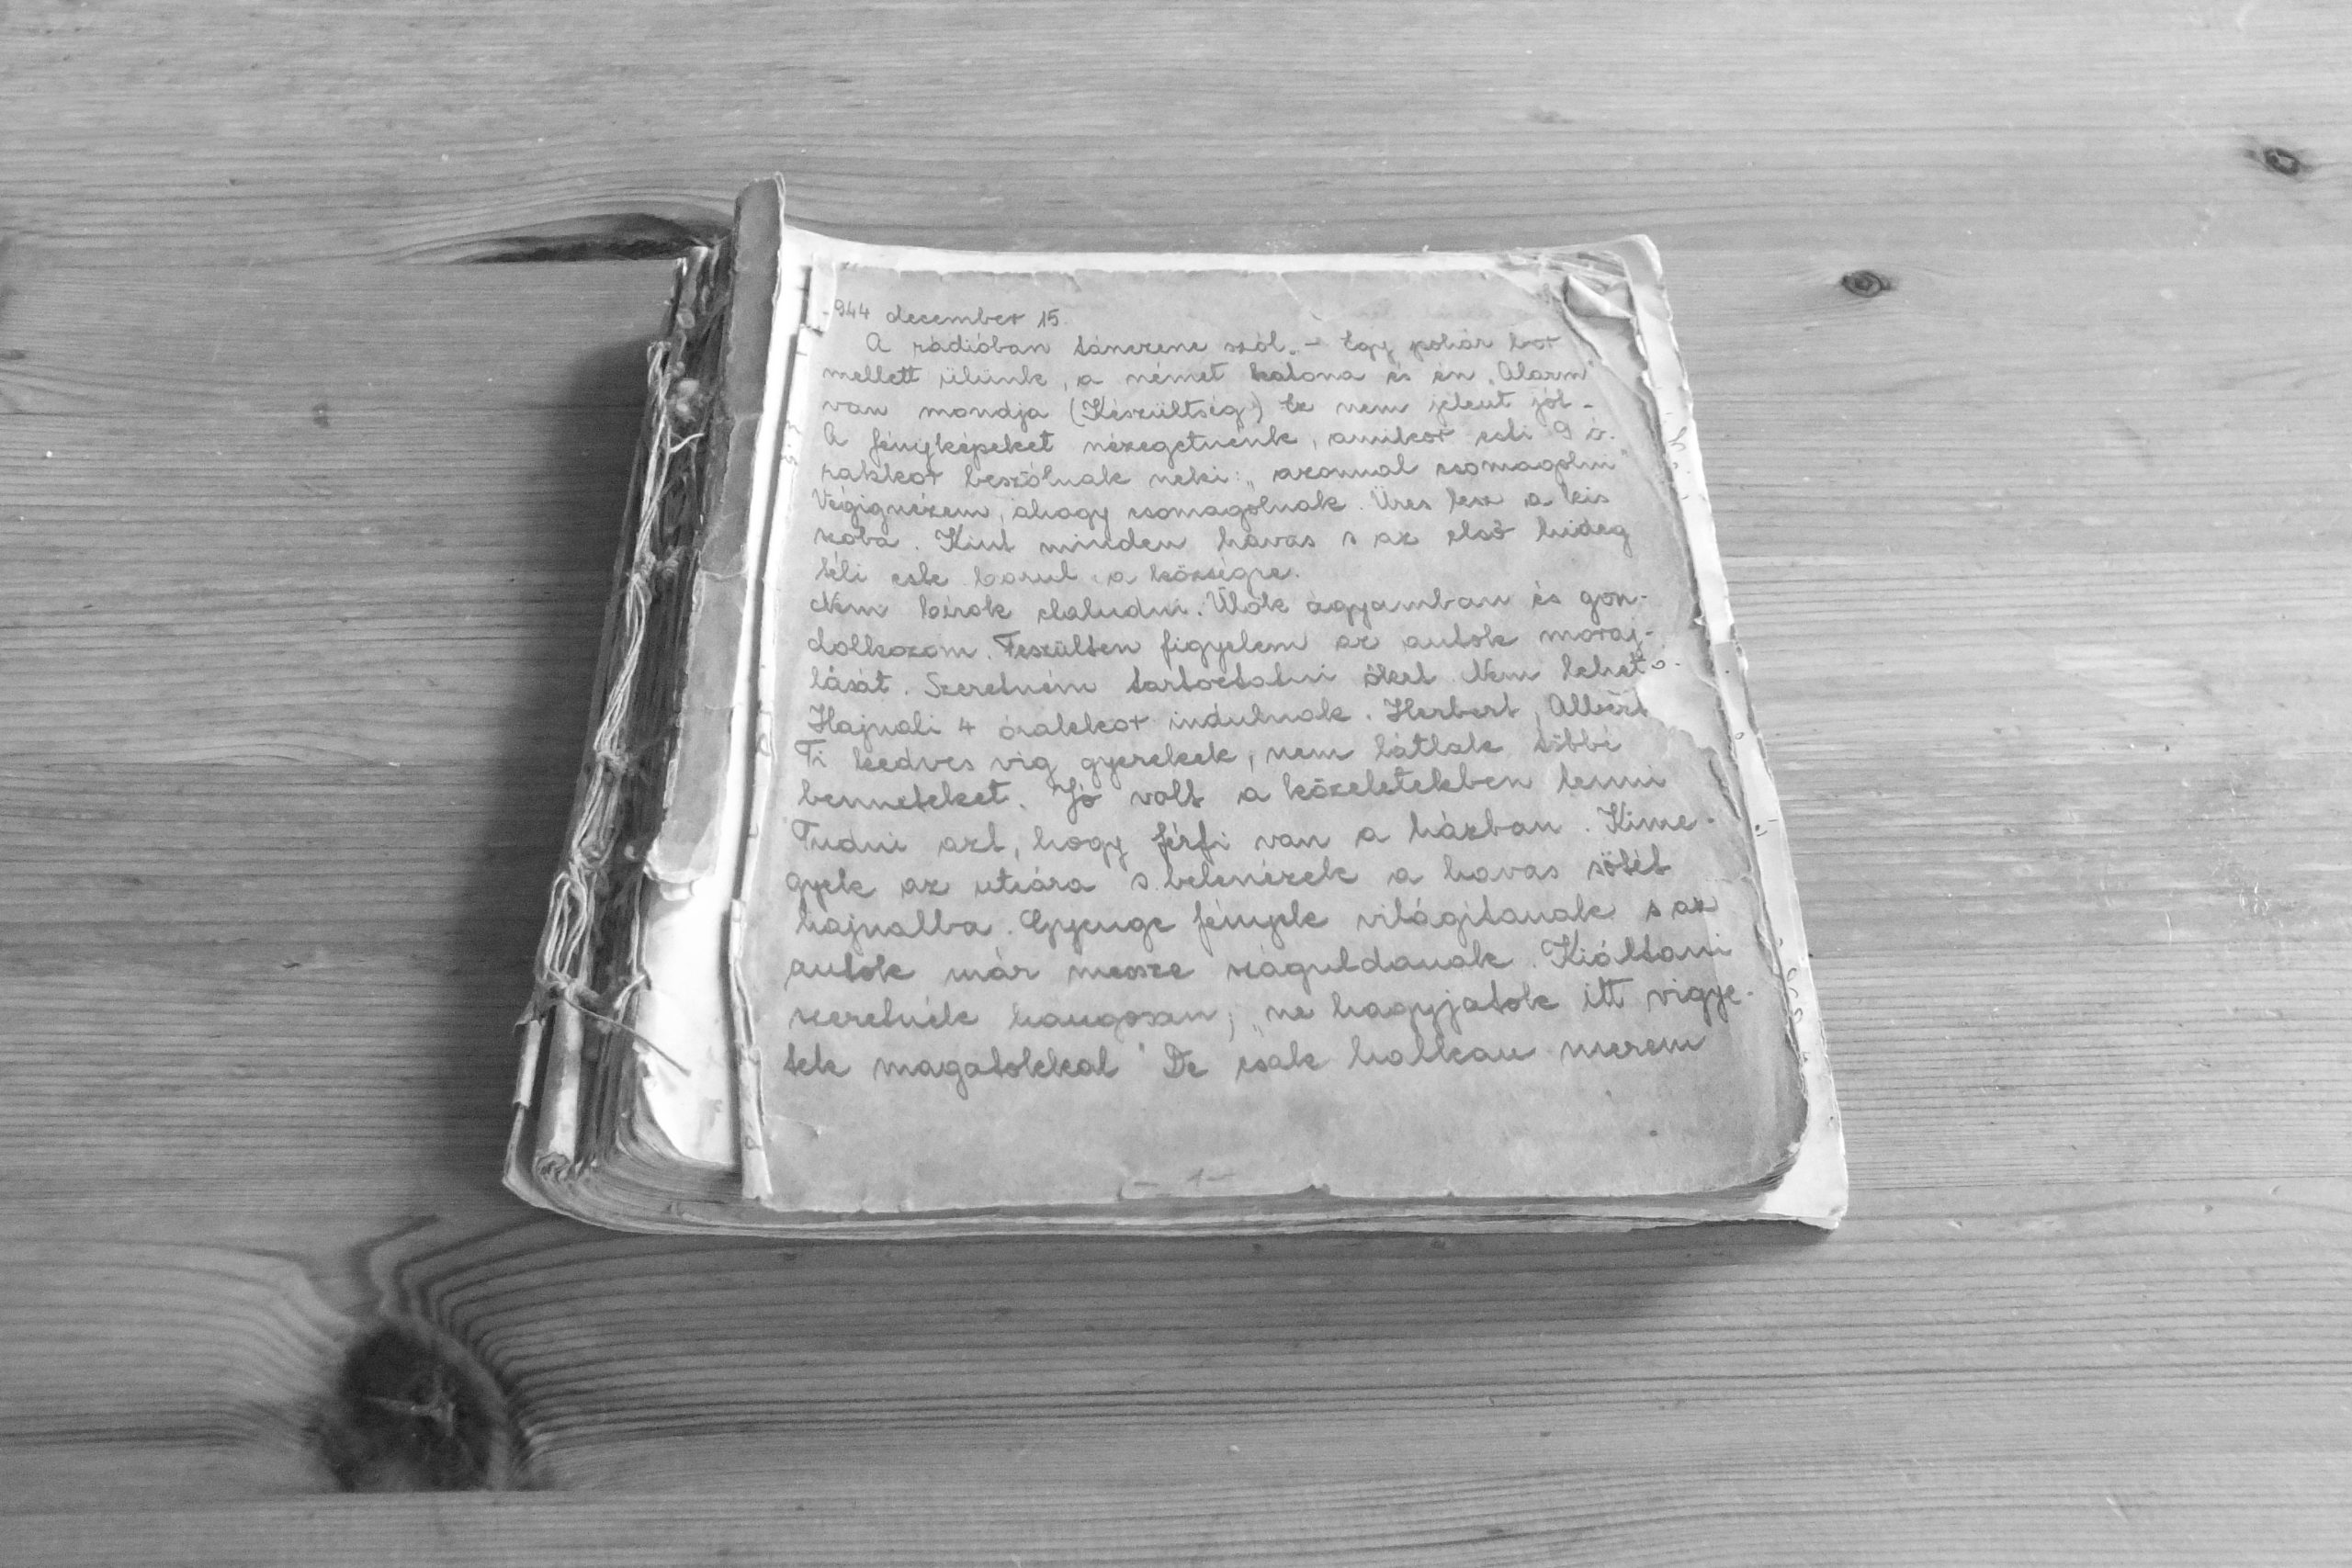 944 december 15.
A rádióban tánczene szól. – Egy pohár bor
mellett ülünk, a német katona és én. „Alarm"
van mondja (Készültség) Ez nem jelent jót –
A fényképeket nézegetnénk, amikor esti 9 ó-
rakkor beszólnak neki: „azonnal csomagolni"
Végignézem, ahogy csomagolnak. Üres lesz a kis
szoba. Kint minden havas s az első hideg
téli este borul a községre.
Nem birok elaludni. Ülök ágyamban és gon-
dolkozom. Feszülten figyelem az autok moraj-
lását. Szeretném tartoztatni őket. Nem lehet
Hajnali 4 órakkor indulnak. Herbert, Albert
Ti kedves vig gyerekek, nem látlak többé
benneteket. Jó volt a közeletekben lenni
Tudni azt, hogy férfi van a házban. Kime-
gyek az utcára s belenézek a havas sötét
hajnalba. Gyenge fények világítanak s az
autok már messze száguldanak. Kiáltani
szeretnék hangosan; „ne hagyjatok itt vigye-
tek magatokkal" De csak halkan merem
– 1 –